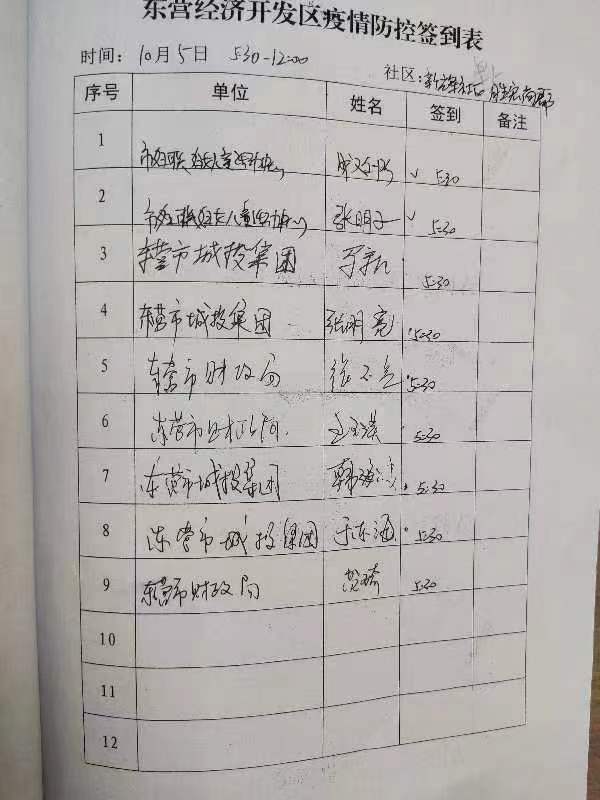 东营经济开发区疫情防控签到表
时间：10月5日 5:30-12:00
社区：
序号 单位 姓名 签到 备注
1 市妇联妇女儿童活动中心 ✓ 5:30
2 市妇联妇女儿童活动中心 张明 ✓ 5:30
3 东营市城投集团 5:30
4 东营市城投集团 张明亮 5:30
5 东营市财政局 5:30
6 东营市财政局 5:30
7 东营市城投集团 5:30
8 东营市城投集团 于东海 5:30
9 东营市财政局 5:30
10
11
12